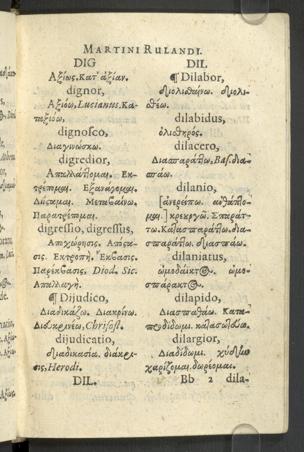 MARTINI RULANDI.
DIG
Ἀξίως. Κατ' ἀξίαν.
dignor,
Ἀξιόω, Lucianus. Κα-
ταξιόω,
dignosco,
Διαγινώσκω.
digredior,
Ἀπαλλάττομαι. Ἐκ-
τρέπομαι. Ἐξανάγομαι.
Μεταβαίνω.
Παρατρέπομαι.
digressio, digressus,
Ἀποχώρησις. Ἀπόστα-
σις. Ἐκτροπὴ. Ἔκβασις.
Παρέκβασις. Diod. Sic.
Ἀπαλλαγή.
¶ Dijudico,
Διαδικάζω. Διακρίνω.
Chrysost.
dijudicatio,
διαδικασία. διάκρι-
σις. Herodi.
DIL.
DIL.
¶ Dilabor,
διολισθαίνω. διολι-
σθέω.
dilabidus,
ὀλισθηρός.
dilacero,
Διασπαράττω, Bas. δια-
σπάω.
dilanio,
κρεουργῶ. Σπαράτ-
τω. Καλασπαράττω. δια-
σπαράττω. διασπάω.
dilaniatus,
ὠμοδάϊκτος. ὠμο-
σπάρακτος.
dilapido,
Διασπαθάω. Κατα-
dilargior,
Διαδίδωμι. χύδην
χαρίζομαι. δωρέομαι.
Bb 2 dila-